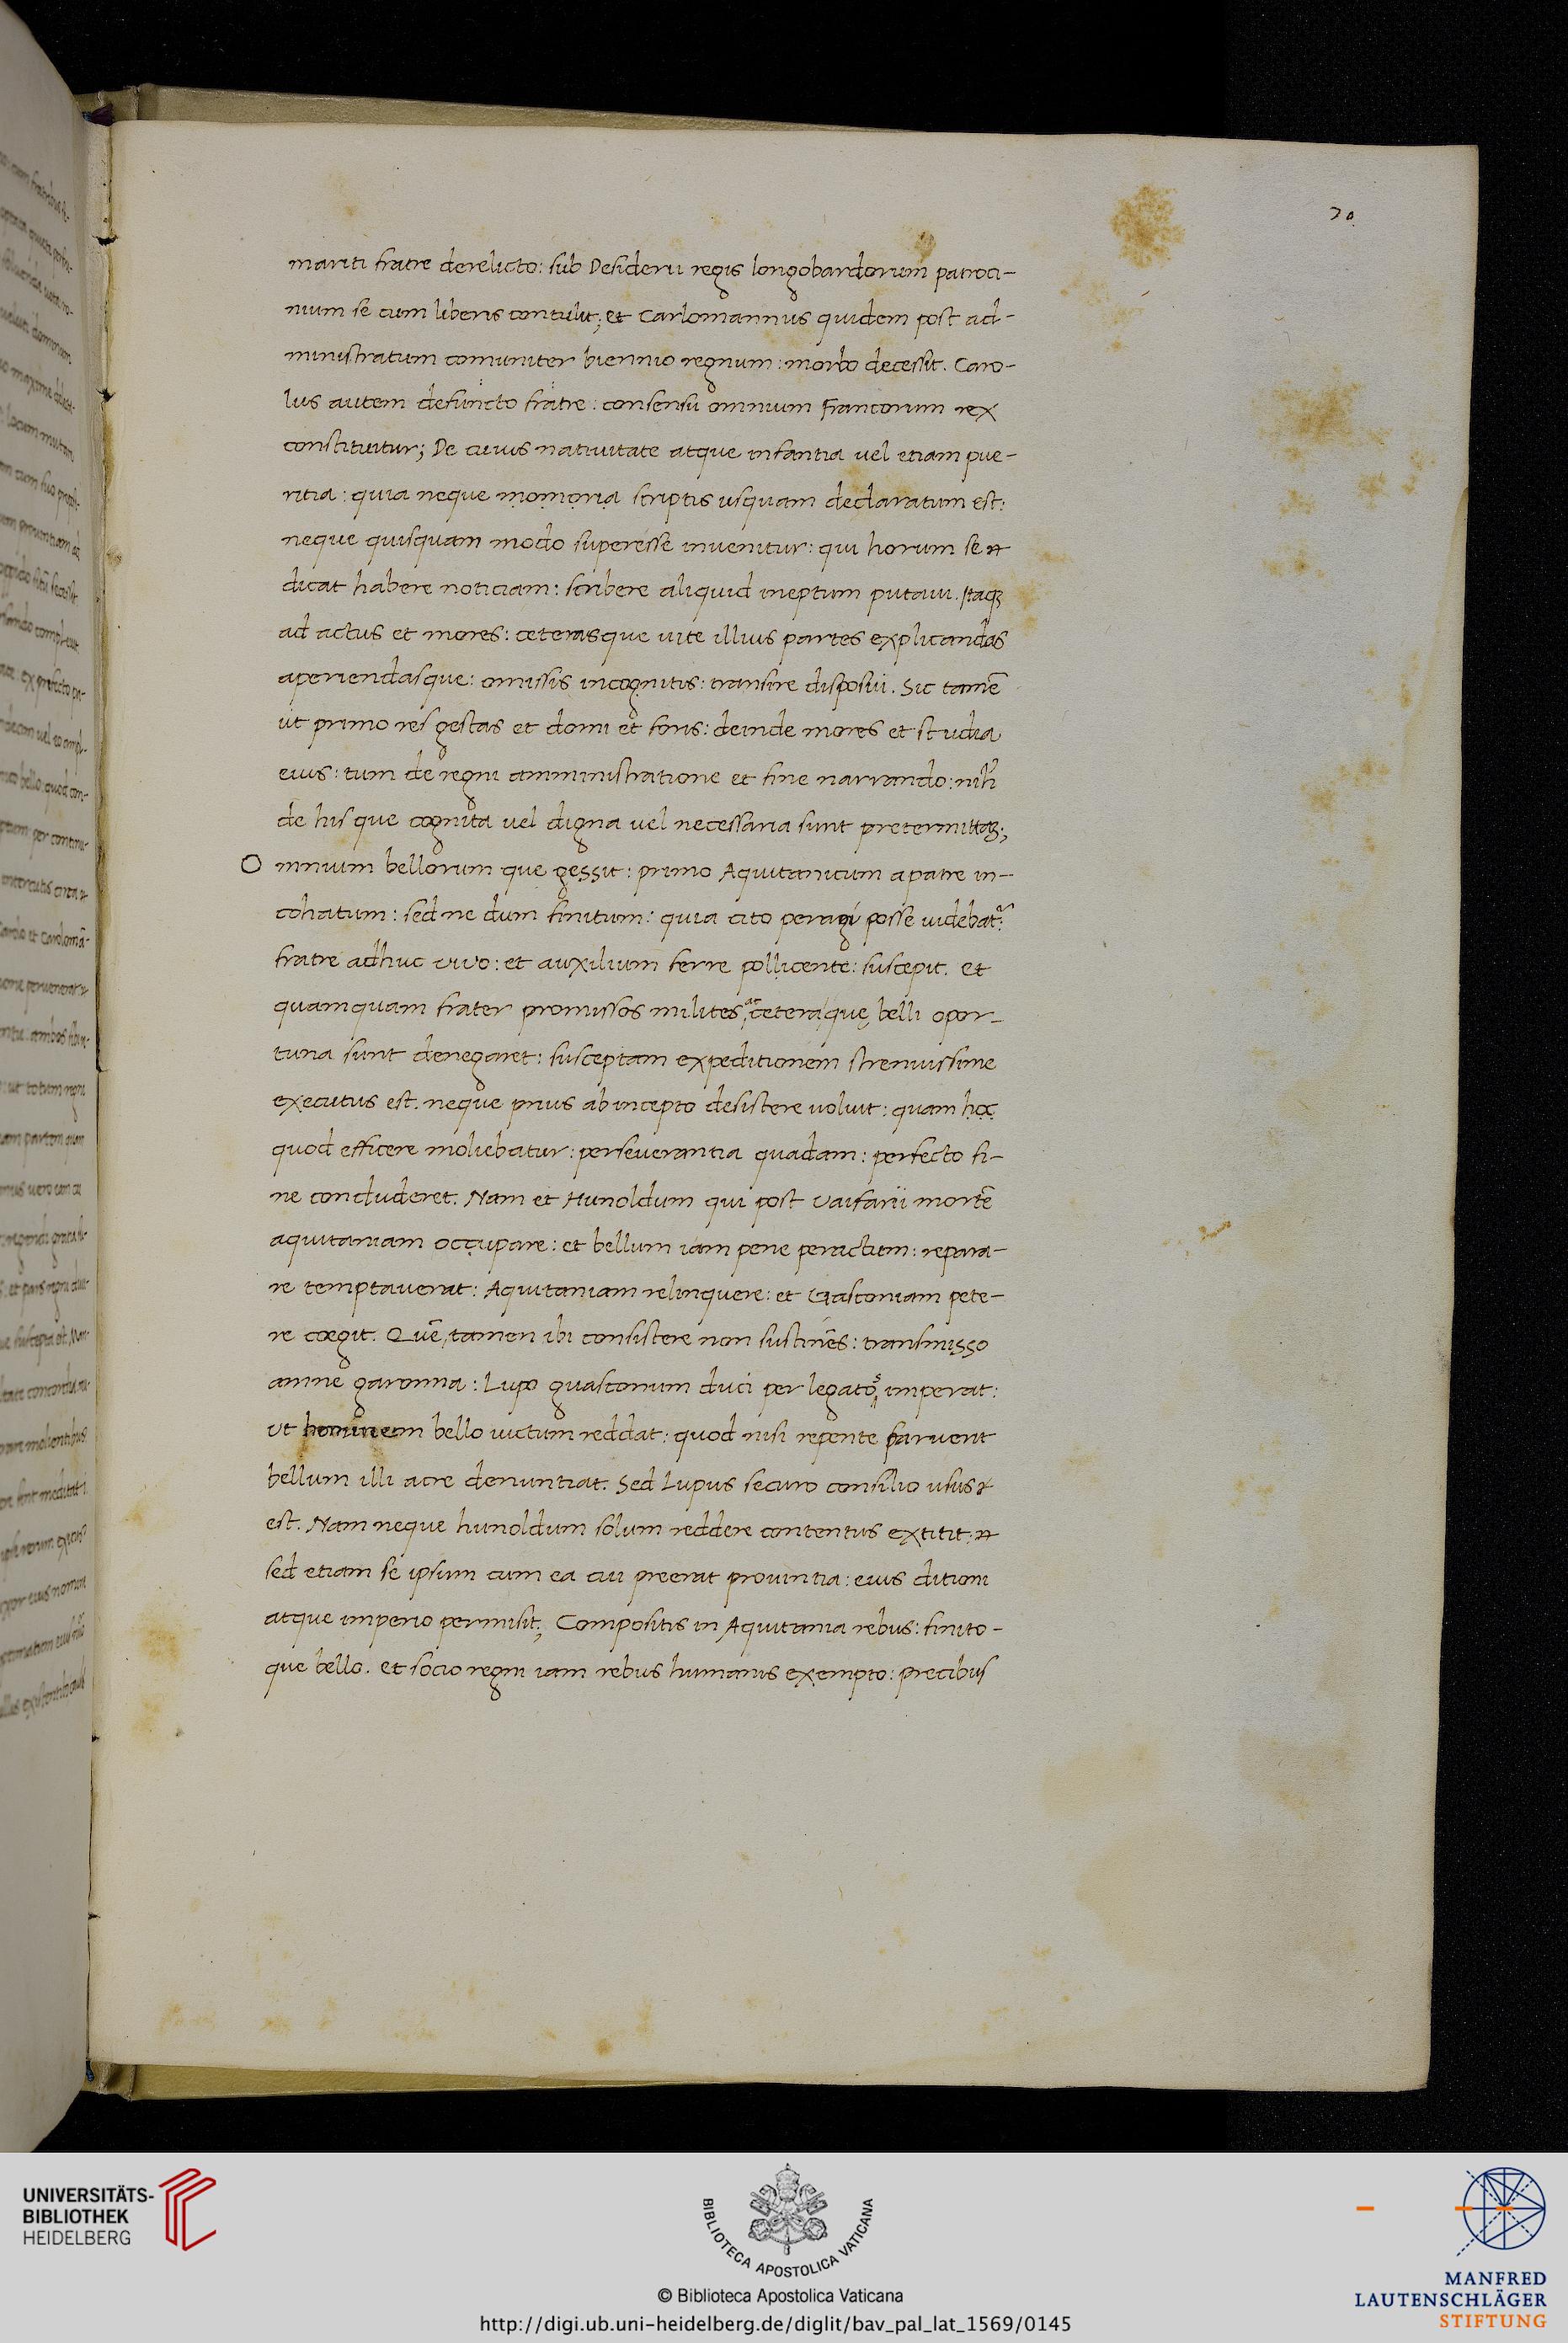 20
mariti fratre derelicto: sub Desiderii regis longobardorum patroci-
nium se cum liberis contulit; et Carlomannus quidem post ad-
ministratum comuniter biennio regnum: morbo decessit. Caro-
lus autem defuncto fratre: consensu omnium Francorum rex
constituitur; De cuius nativitate atque infantia vel etiam pue-
ritia: quia neque momoria scriptis usquam declaratum est:
neque quisquam modo superesse invenitur: qui horum se
dicat habere noticiam: scribere aliquid ineptum putavi. Itaqȝ
ad actus et mores: ceterasque vite illius partes explicandas
aperiendasque: omissis incognitis: transire disposui. Sic tamē
ut primo res gestas et domi et foris: deinde mores et studia
eius: tum de regni amministratione et fine narrando: nihī
de his que cognita vel digna vel necessaria sunt pretermittaȝ;
O mnium bellorum que gessit: primo Aquitanicum a patre in-
cohatum: sed ne dum finitum: quia cito peragi posse videbat᷑:
fratre adhuc vivo: et auxilium ferre pollicente: suscepit. et
quamquam frater promissos milites ac cetera que belli opor-
tuna sunt denegaret: susceptam expeditionem strenuissime
executus est. neque prius ab incepto desistere voluit: quam hoc
quod efficere moliebatur: perseverantia quadam: perfecto fi-
ne concluderet. Nam et Hunoldum qui post Vaifarii mortē
aquitaniam occupare: et bellum iam pene peractum: repara-
re temptaverat: Aquitaniam relinquere: et Gasconiam pete-
re coegit. Quē tamen ibi consistere non sustinēs: transmisso
amne garonna: Lupo guasconum duci per legatos imperat:
ut hominem bello victum reddat: quod nisi repente paruerit
bellum illi acre denuntiat. Sed Lupus securo consilio usus
est. Nam neque hunoldum solum reddere contentus extitit:
sed etiam se ipsum cum ea cui preerat provintia: eius ditioni
atque imperio permisit; Compositis in Aquitania rebus: finito-
que bello. et socio regni iam rebus humanis exempto: precibus
UNIVERSITÄTS-
BIBLIOTHEK
HEIDELBERG
BIBLIOTECA APOSTOLICA VATICANA
© Biblioteca Apostolica Vaticana
http://digi.ub.uni-heidelberg.de/diglit/bav_pal_lat_1569/0145
MANFRED
LAUTENSCHLÄGER
STIFTUNG